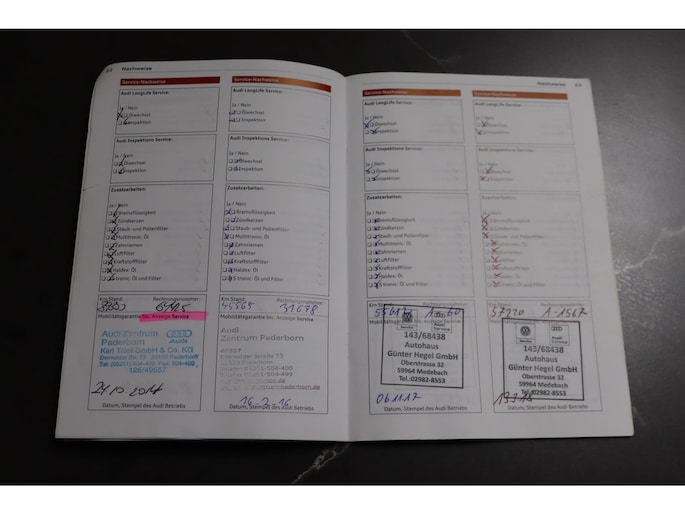 Nachweise
Service-Nachweise
Audi LongLife Service:
Ja / Nein
Ölwechsel
Inspektion
Audi Inspektions Service:
Ja / Nein
Ölwechsel
Inspektion
Zusatzarbeiten:
Ja / Nein
Bremsflüssigkeit
Zündkerzen
Staub- und Pollenfilter
Multitronic Öl
Zahnriemen
Luftfilter
Kraftstofffilter
Haldex Öl
S tronic Öl und Filter
Km Stand:
Rechnungsnummer:
Mobilitätsgarantie bis: Anzeige Service
Audi Zentrum
Paderborn
Audi
Karl Thiel GmbH & Co. KG
24 10 2014
Datum, Stempel des Audi Betriebs
Service-Nachweise
Audi LongLife Service:
Ja / Nein
Ölwechsel
Inspektion
Audi Inspektions Service:
Ja / Nein
Ölwechsel
Inspektion
Zusatzarbeiten:
Ja / Nein
Bremsflüssigkeit
Zündkerzen
Staub- und Pollenfilter
Multitronic Öl
Zahnriemen
Luftfilter
Kraftstofffilter
Haldex Öl
S tronic Öl und Filter
Km Stand:
45565
31678
Mobilitätsgarantie bis: Anzeige Service
Audi
Zentrum Paderborn
16-2-16
Datum, Stempel des Audi Betriebs
Nachweise
Service-Nachweise
Audi LongLife Service:
Ja / Nein
Ölwechsel
Inspektion
Audi Inspektions Service:
Ja / Nein
Ölwechsel
Inspektion
Zusatzarbeiten:
Ja / Nein
Bremsflüssigkeit
Zündkerzen
Staub- und Pollenfilter
Multitronic Öl
Zahnriemen
Luftfilter
Kraftstofffilter
Haldex Öl
S tronic Öl und Filter
143/68438
Autohaus
Günter Hegel GmbH
Oberstrasse 32
59964 Medebach
Tel.:02982-8553
061117
Datum, Stempel des Audi Betriebs
Service-Nachweise
Audi LongLife Service:
Ja / Nein
Ölwechsel
Inspektion
Audi Inspektions Service:
Ja / Nein
Ölwechsel
Inspektion
Zusatzarbeiten:
Ja / Nein
Bremsflüssigkeit
Zündkerzen
Staub- und Pollenfilter
Multitronic Öl
Zahnriemen
Luftfilter
Kraftstofffilter
Haldex Öl
S tronic Öl und Filter
57220
A-1567
143/68438
Autohaus
Günter Hegel GmbH
Oberstrasse 32
59964 Medebach
Tel.:02982-8553
Datum, Stempel des Audi Betriebs